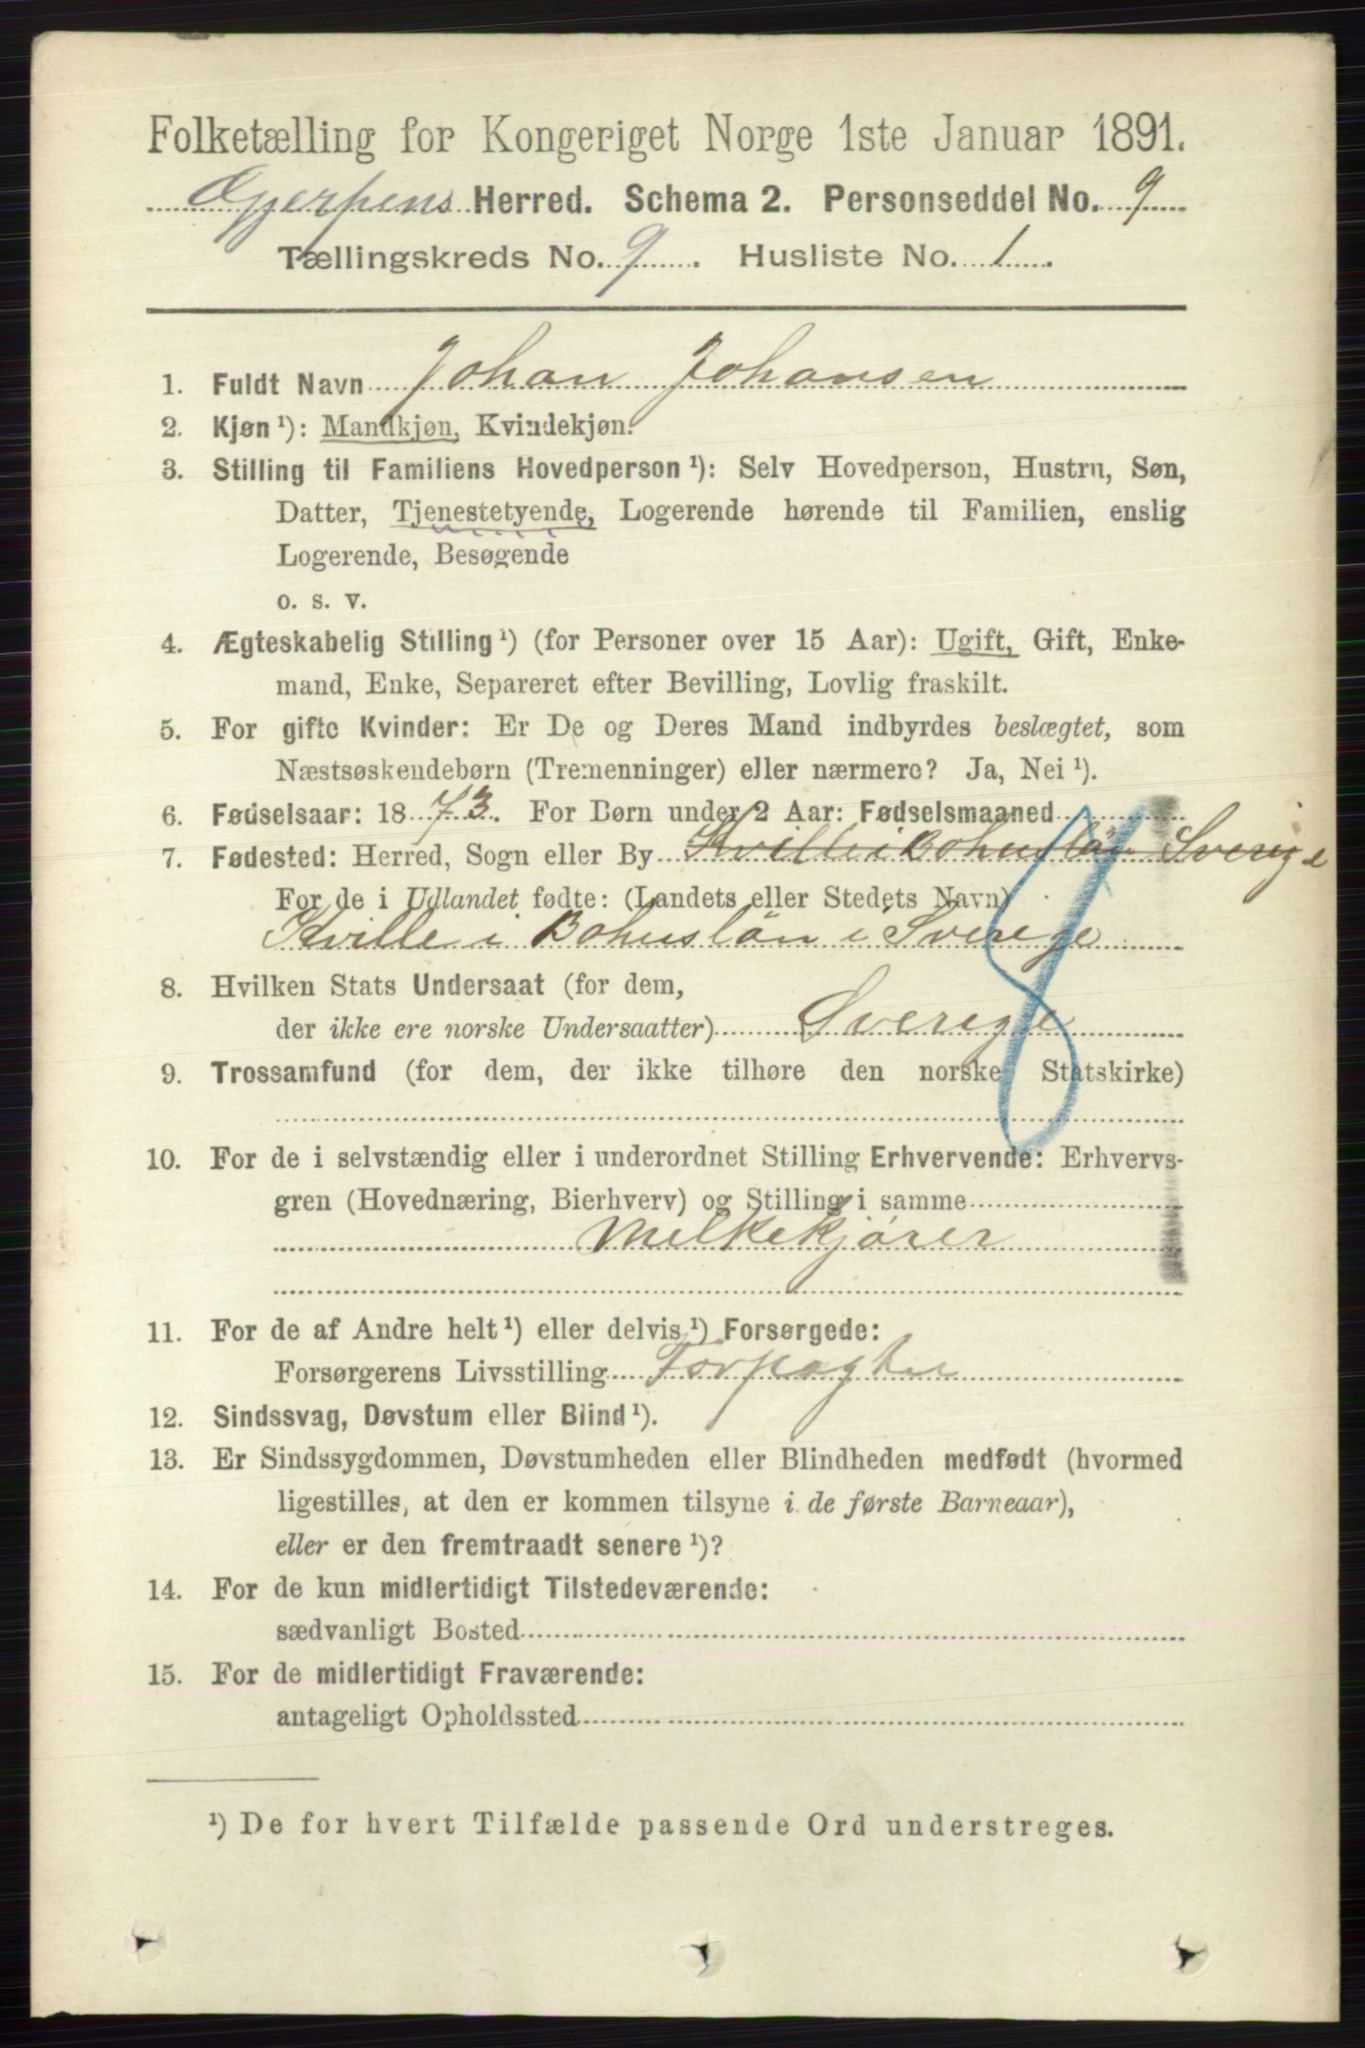 Folketælling for Kongeriget Norge 1ste Januar 1891.
Gjerpens Herred. Schema 2. Personseddel No. 9
Tællingskreds No. 9. Husliste No. 1.
1. Fuldt Navn Johan Johansen
2. Kjøn ¹): Mandkjøn, Kvindekjøn.
3. Stilling til Familiens Hovedperson ¹): Selv Hovedperson, Hustru, Søn,
Datter, Tjenestetyende, Logerende hørende til Familien, enslig
Logerende, Besøgende
o. s. v.
4. Ægteskabelig Stilling ¹) (for Personer over 15 Aar): Ugift, Gift, Enke-
mand, Enke, Separeret efter Bevilling, Lovlig fraskilt.
5. For gifte Kvinder: Er De og Deres Mand indbyrdes beslægtet, som
Næstsøskendebørn (Tremenninger) eller nærmere? Ja, Nei ¹).
6. Fødselsaar: 1873. For Børn under 2 Aar: Fødselsmaaned
7. Fødested: Herred, Sogn eller By Kville i Bohuslän Sverige
For de i Udlandet fødte: (Landets eller Stedets Navn)
Kville i Bohuslän i Sverege
8. Hvilken Stats Undersaat (for dem,
der ikke ere norske Undersaatter) Sverige
9. Trossamfund (for dem, der ikke tilhøre den norske Statskirke)
10. For de i selvstændig eller i underordnet Stilling Erhvervende: Erhvervs-
gren (Hovednæring, Bierhverv) og Stilling i samme
Melkekjører
11. For de af Andre helt ¹) eller delvis ¹) Forsørgede:
Forsørgerens Livsstilling Forpagter
12. Sindssvag, Døvstum eller Blind ¹).
13. Er Sindssygdommen, Døvstumheden eller Blindheden medfødt (hvormed
ligestilles, at den er kommen tilsyne i de første Barneaar),
eller er den fremtraadt senere ¹)?
14. For de kun midlertidigt Tilstedeværende:
sædvanligt Bosted
15. For de midlertidigt Fraværende:
antageligt Opholdssted
¹) De for hvert Tilfælde passende Ord understreges.
8